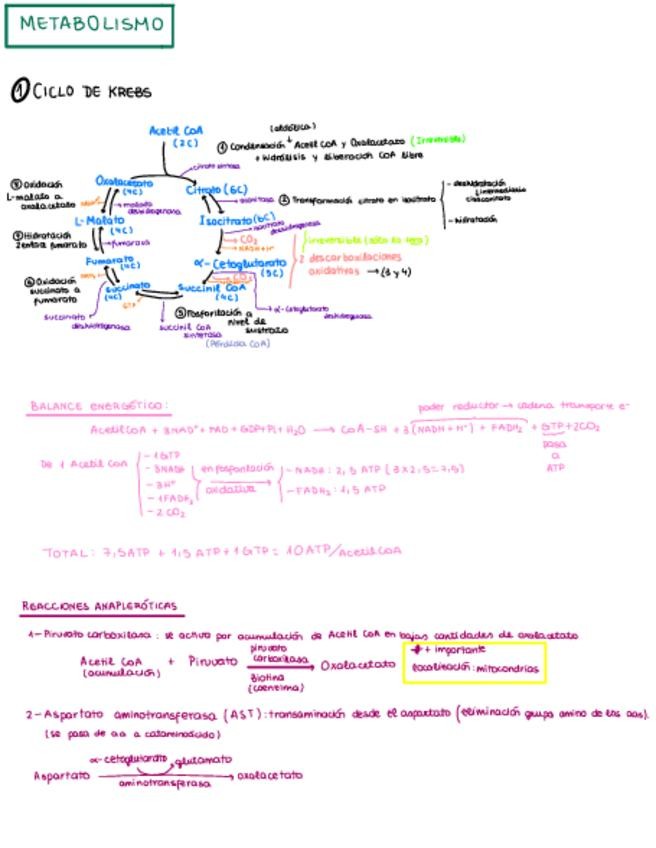 METABOLISMO
① CICLO DE KREBS
Acetil CoA
(2C)
① Condensación Acetil CoA y Oxalacetato (Irreversible)
+ Hidrólisis y liberación CoA libre
citrato sintasa
⑧ Oxidación
L-malato a
oxalacetato
Oxalacetato
(4C)
Citrato (6C)
malato
deshidrogenasa
② Transformación citrato en isocitrato
- deshidratación
- hidratación
L-Malato
(4C)
Isocitrato (6C)
isocitrato
deshidrogenasa
CO₂
NADH+H⁺
Hidratación
fumarato
fumarasa
irreversible
2 descarboxilaciones
oxidativas → (3 y 4)
Fumarato
(4C)
α-Cetoglutarato
(5C)
CO₂
⑥ Oxidación
succinato a
fumarato
Succinato
(4C)
Succinil CoA
(4C)
GTP
α-Cetoglutarato
deshidrogenasa
succinato
deshidrogenasa
succinil CoA
sintetasa
⑤ Fosforilación a
nivel de
sustrato
(Pérdida CoA)
BALANCE ENERGÉTICO:
poder reductor → cadena transporte e⁻
Acetil CoA + 3NAD⁺ + FAD + GDP+Pi + H₂O → CoA-SH + 3(NADH + H⁺) + FADH₂ + GTP + 2CO₂
pasa
a
ATP
De 1 Acetil CoA
- 1 GTP
- 3NADH
- 3H⁺
- 1FADH₂
- 2 CO₂
en fosforilación
oxidativa
- NADH: 2,5 ATP (3x2,5=7,5)
- FADH₂: 1,5 ATP
TOTAL: 7,5ATP + 1,5 ATP + 1GTP = 10ATP/Acetil CoA
REACCIONES ANAPLERÓTICAS
1- Piruvato carboxilasa: se activa por acumulación de Acetil CoA en bajas cantidades de oxalacetato
Acetil CoA + Piruvato
(acumulación)
piruvato
carboxilasa
Biotina
(coenzima)
Oxalacetato
+ importante
localización: mitocondrias
2- Aspartato aminotransferasa (AST): transaminación desde el aspartato (eliminación grupo amino de los aas).
(se pasa de aa a cetoaminoácido)
α-cetoglutarato glutamato
Aspartato → oxalacetato
aminotransferasa